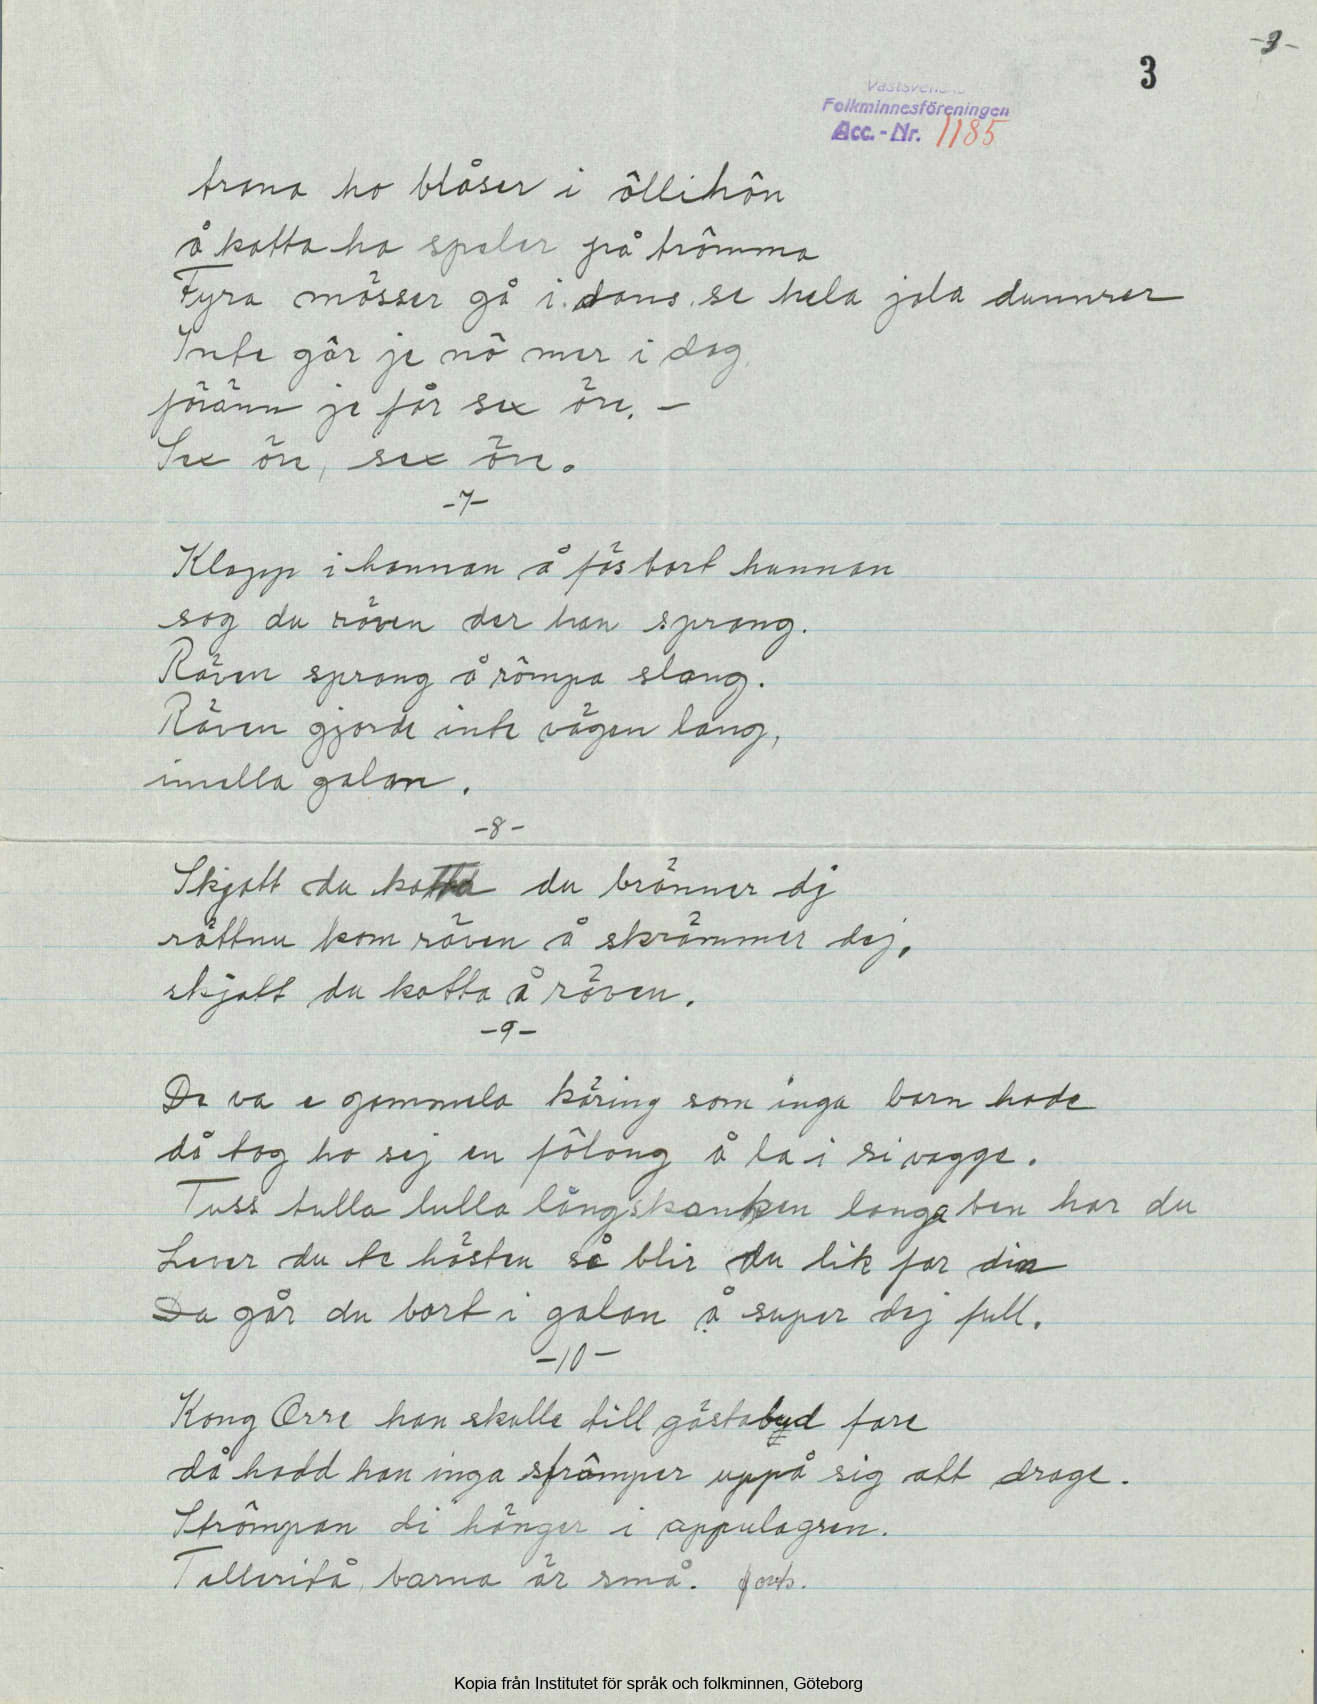 -3-
3
Västsvenska
Folkminnesföreningen
Acc.-Nr. 1185
trana ho blåser i ôllihôn
å katta ho speler på trômma
Fyra mösser gå i dans se hela jola dunnrer
Inte gôr je nô mer i dag
föränn je får sex öre. —
Sex öre, sex öre.
-7-
Klapp i hannan å fös bort hunnan
sag du räven der han sprang.
Räven sprang å rômpa slang.
Räven gjorde inte vägen lang,
imella galan.
-8-
Skjatt du katta du bränner dj
rättnu kom räven å skrämmer dej.
skjatt du katta å räven.
-9-
De va e gammela käring som inga barn hade
då tog ho sej en fôlong å la i si vagge.
Tuss tulla lulla långskanken langa ben har du
Lever du te hösten så blir du lik far din
Da går du bort i galan å super dej full.
-10-
Kong Orre han skulle till gästabud fare
då hadd han inga strômper uppå sig att drage.
Strômpan di hänger i appulagren.
Talleritå, barna är små. forts.
Kopia från Institutet för språk och folkminnen, Göteborg